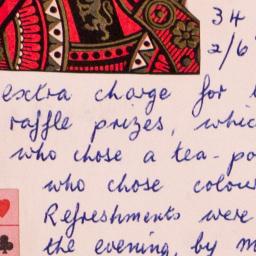 34
2/6
extra charge for
raffle prizes,
who chose a tea-
who chose
Refreshments were
the evening, by